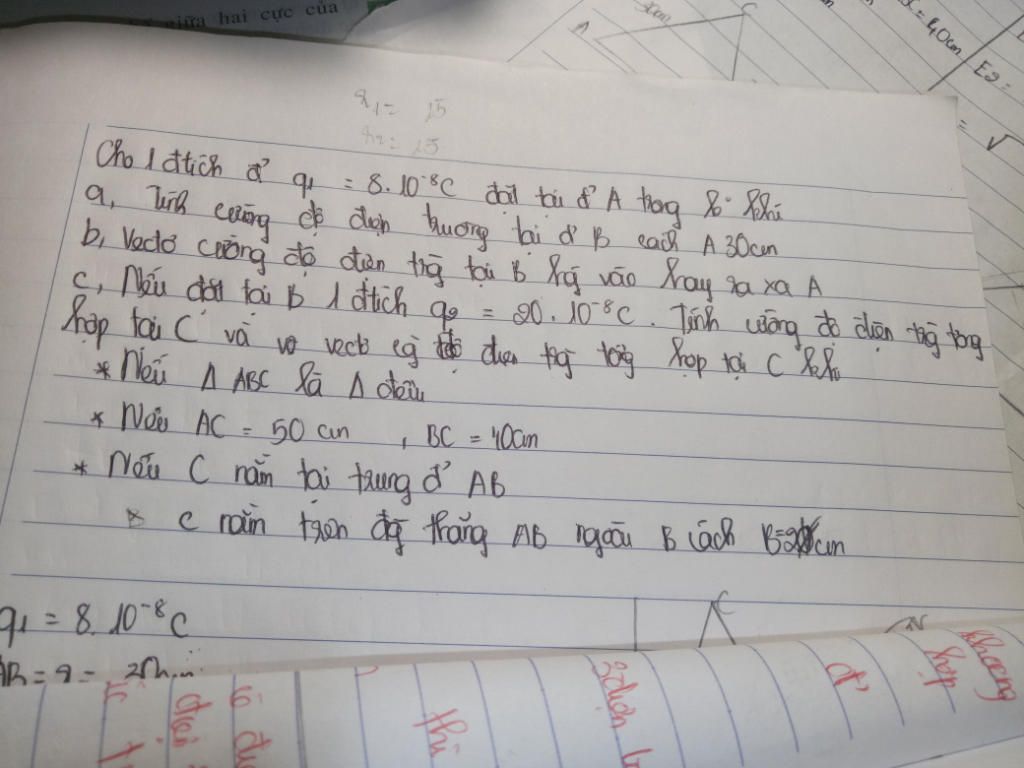 giữa hai cực của
C
A
= 40cm
E2 =
= √
x1 = 15
x2 = 15
Cho 1 đtích đ' q1 = 8.10⁻⁸C đặt tại đ' A trong k² khí
a, Tính cường độ điện trường tại đ' B cách A 30cm
b, Vectơ cường độ điện trg tại B hg vào hay ra xa A
c, Nếu đặt tại B 1 đtích q2 = 20.10⁻⁸C. Tính cường độ điện trg tổng
hợp tại C và vẽ vectơ cg độ điện trg tổng hợp tại C khi
* Nếu Δ ABC là Δ đều
* Nếu AC = 50 cm , BC = 40cm
* Nếu C nằm tại trung đ' AB
C nằm trên đg thẳng AB ngoài B cách B
q1 = 8.10⁻⁸C
C
khoang
hợp
đ'
thì